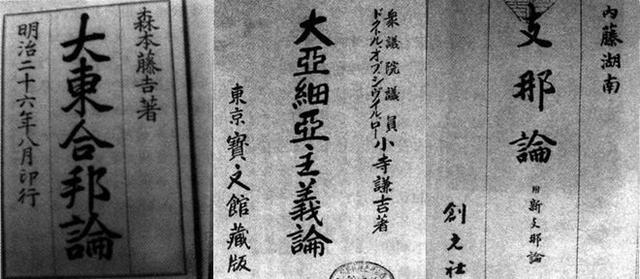 森本藤吉著
大東合邦論
明治二十六年八月印行
衆議院議員
ドクトルオブシヴィルロー 小寺謙吉著
大亞細亞主義論
東京 寳文館藏版
內藤湖南
支那論
附 新支那論
創元社